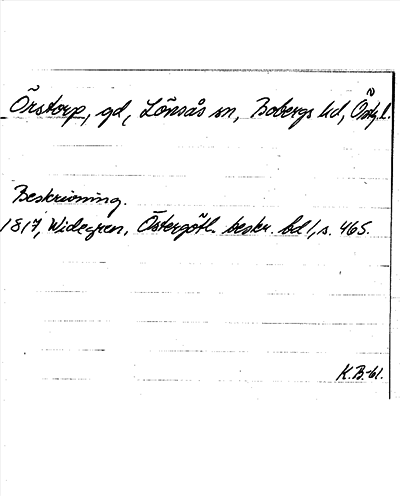 Örstorp, gd, Lönsås sn, Bobergs hd, Östg l.
Beskrivning.
1817, Widegren, Östergötl. beskr. bd 1, s. 465.
K.B.-61.